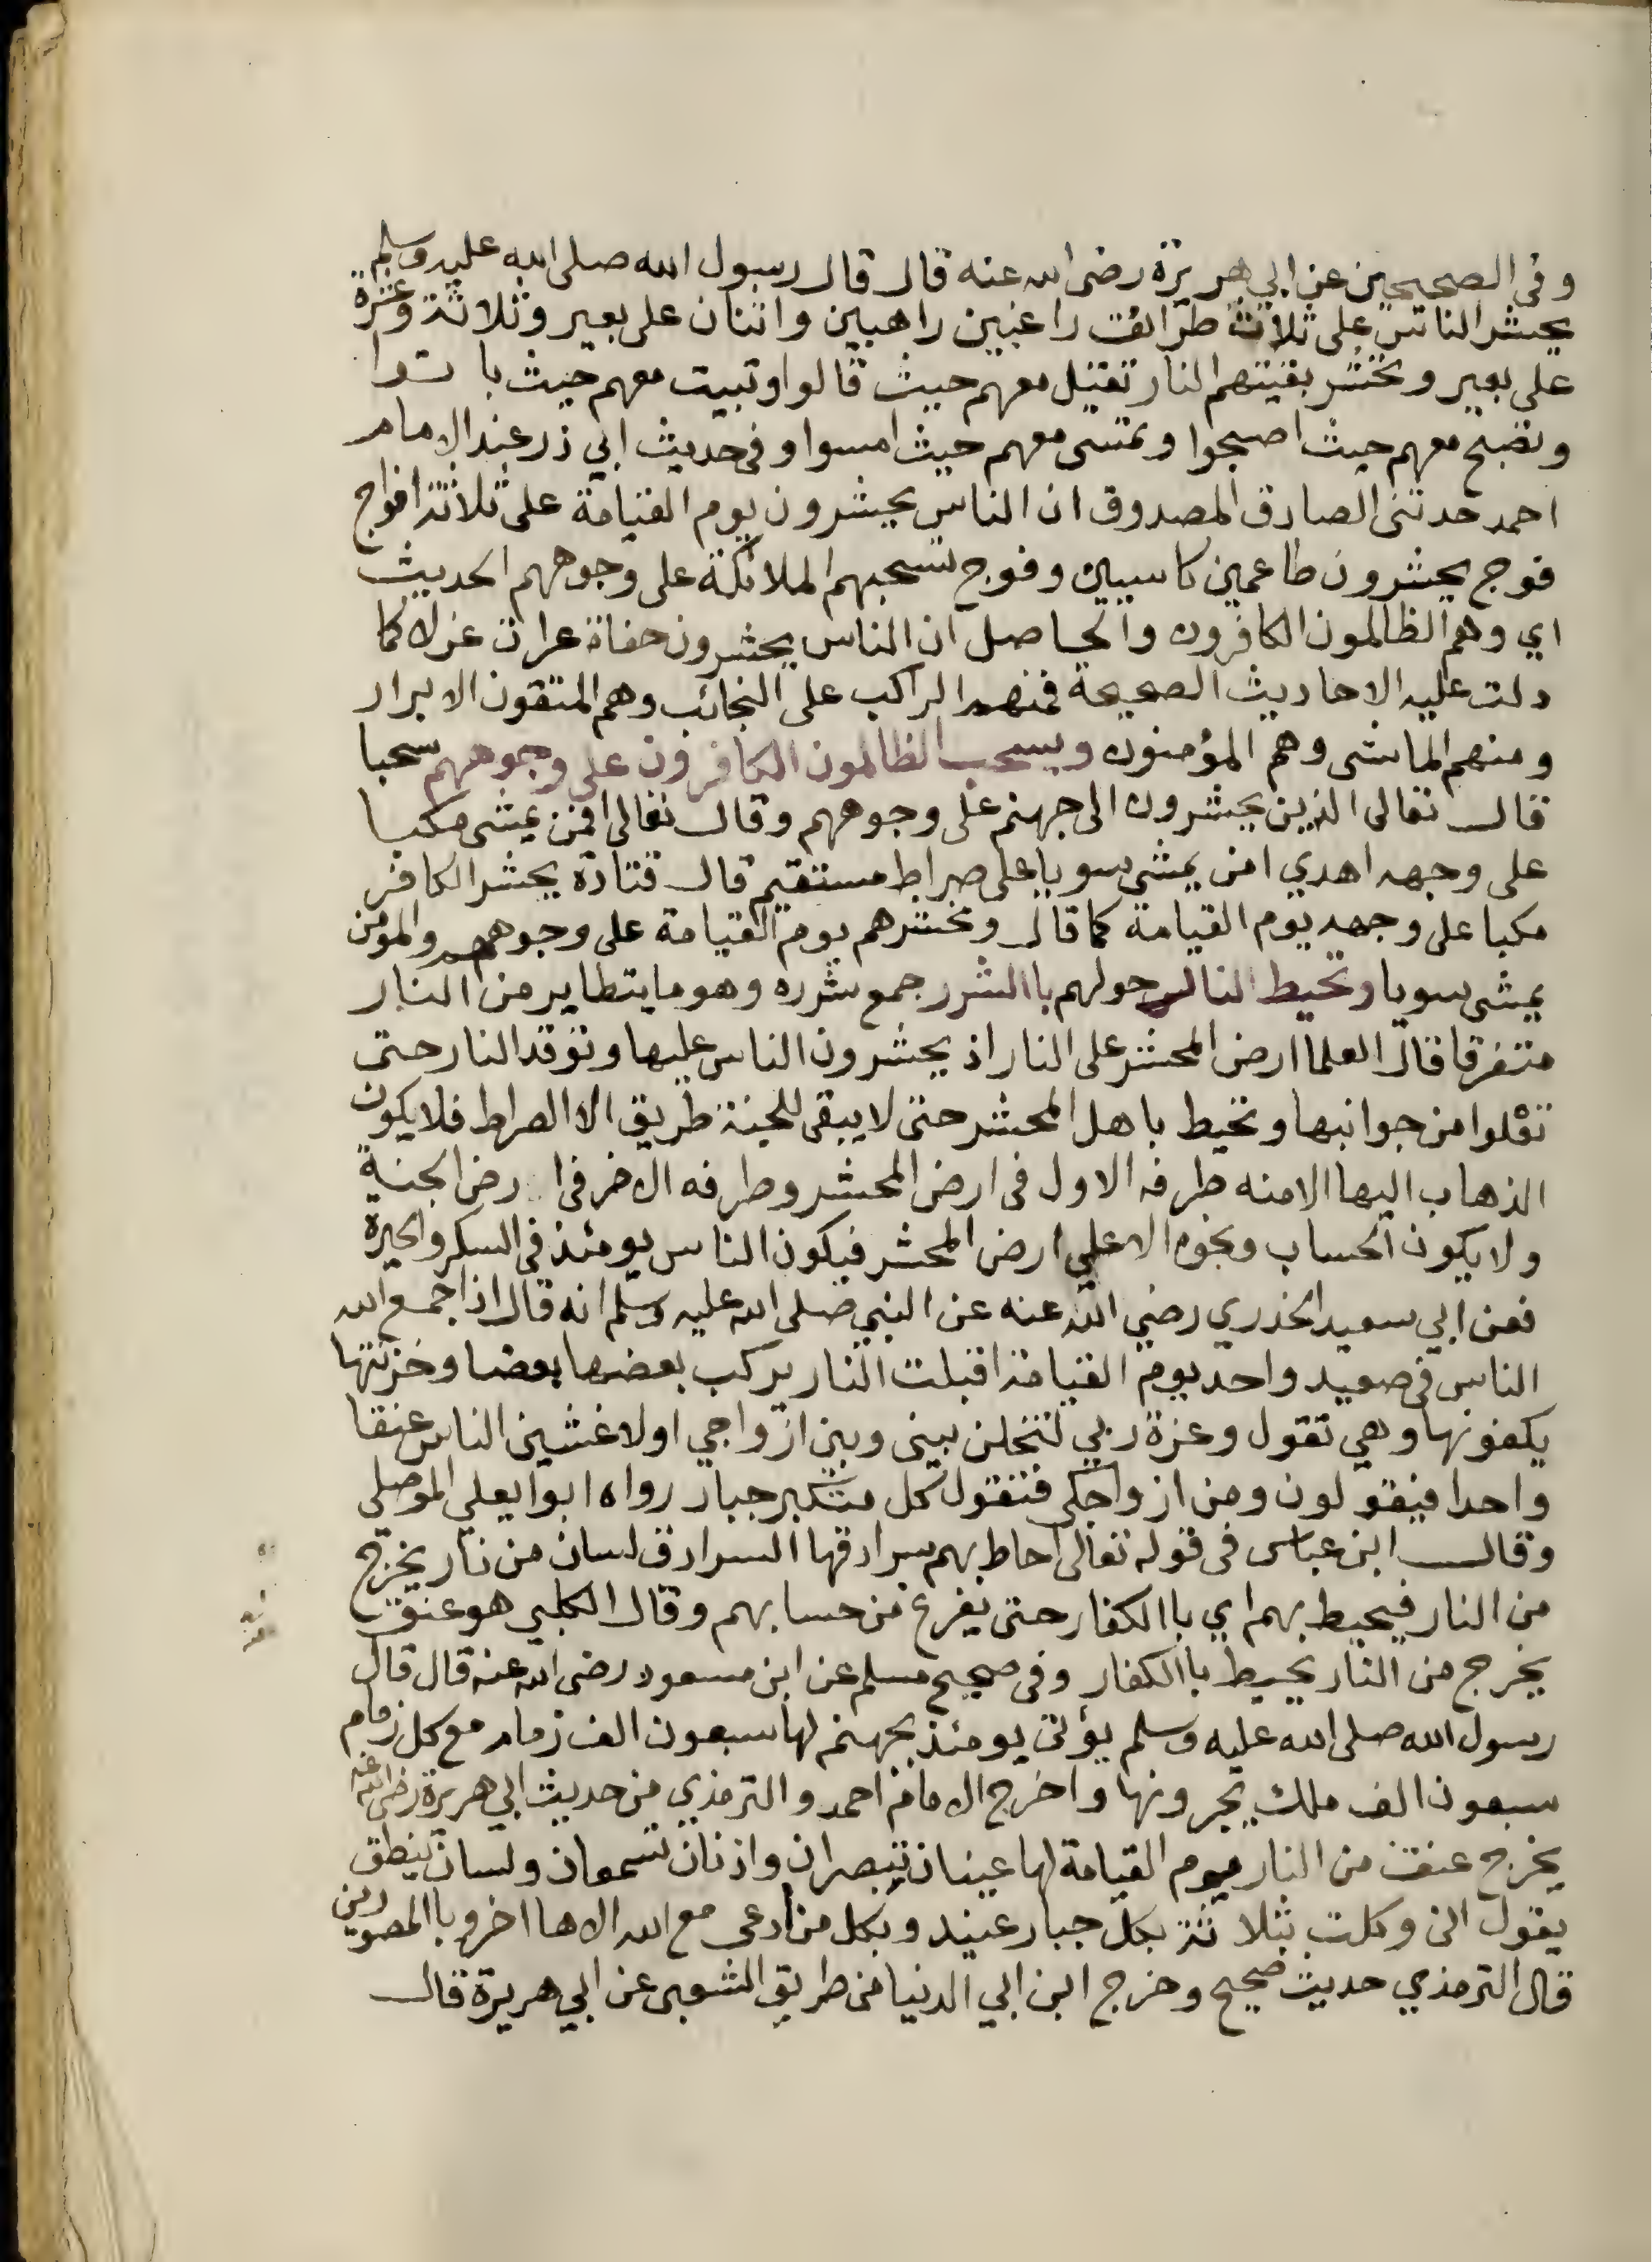 وفى الصحيحين عن ابي هريرة رضى الله عنه قال قال رسول الله صلى الله عليه وسلم
يحشر الناس على ثلاث طرائق راغبين راهبين واثنان على بعير وثلاثة وعشرة
على بعير وتحشر بقيتهم النار تقيل معهم حيث قالوا وتبيت معهم حيث باتوا
وتصبح معهم حيث اصبحوا وتمسى معهم حيث امسوا وفى حديث ابي ذر عند الامام
احمد حدثنى الصادق المصدوق ان الناس يحشرون يوم القيامة على ثلاثة افواج
فوج يحشرون طاعمين كاسيين وفوج تسحبهم الملائكة على وجوههم الحديث
اي وهم الظالمون الكافرون والحاصل ان الناس يحشرون حفاة عرات غرلا كما
دلت عليه الاحاديث الصحيحة فمنهم الراكب على النجائب وهم المتقون الابرار
ومنهم الماشى وهم المؤمنون ويسحب الظالمون الكافرون على وجوههم سحبا
قال تعالى الذين يحشرون الى جهنم على وجوههم وقال تعالى افمن يمشى مكبا
على وجهه اهدي امن يمشى سويا على صراط مستقيم قال قتادة يحشر الكافر
مكبا على وجهه يوم القيامة كما قال ونحشرهم يوم القيامة على وجوههم والمومن
يمشى سويا وتحيط النار حولهم باالشرر جمع شرره وهو ما يتطاير من النار
متفرقا قال العلما ارض المحشر على النار اذ يحشرون الناس عليها وتوقد النار حتى
تعلوا من جوانبها وتحيط باهل المحشر حتى لا يبقى للجنة طريق الا الصراط فلا يكون
الذهاب اليها الا منه طرفه الاول فى ارض المحشر وطرفه الاخر فى ارض الجنة
ولا يكون الحساب ونحوه الا على ارض المحشر فيكون الناس يومئذ فى السكر والحيرة
فعن ابي سعيد الخدري رضي الله عنه عن النبي صلى الله عليه وسلم انه قال اذا جمع الله
الناس فى صعيد واحد يوم القيامة اقبلت النار يركب بعضها بعضا وخزنتها
يكفونها وهي تقول وعزة ربي لتخلن بينى وبين ازواجي اولاغشين الناس عنقا
واحدا فيقولون ومن ازواجكى فتقول كل متكبر جبار رواه ابوا يعلى الموصلى
وقال ابن عباس فى قوله تعالى احاط بهم سرادقها السرادق لسان من نار يخرج
من النار فيحيط بهم اي باالكفار حتى يفرغ من حسابهم وقال الكلبي هو عنق
يخرج من النار يحيط باالكفار وفى صحيح مسلم عن ابن مسعود رضى الله عنه قال قال
رسول الله صلى الله عليه وسلم يؤتى يومئذ بجهنم لها سبعون الف زمام مع كل زمام
سبعون الف ملك يجرونها واخرج الامام احمد والترمذي من حديث ابي هريرة رضى الله عنه
يخرج عنق من النار يوم القيامة لها عينان تبصران واذنان تسمعان ولسان ينطق
يقول انى وكلت بثلاثة بكل جبار عنيد وبكل من ادعى مع الله الاها اخر وباالمصورين
قال الترمذي حديث صحيح وخرج ابن ابي الدنيا من طريق الشعبى عن ابي هريرة قال